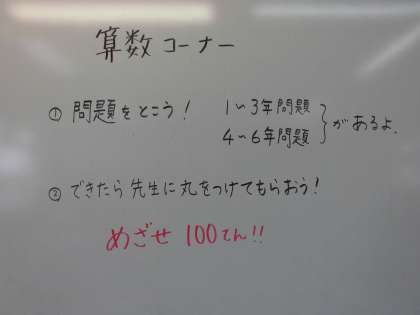 算数コーナー
① 問題をとこう! 1～3年問題
4～6年問題 } があるよ.
② できたら先生に丸をつけてもらおう!
めざせ 100てん!!